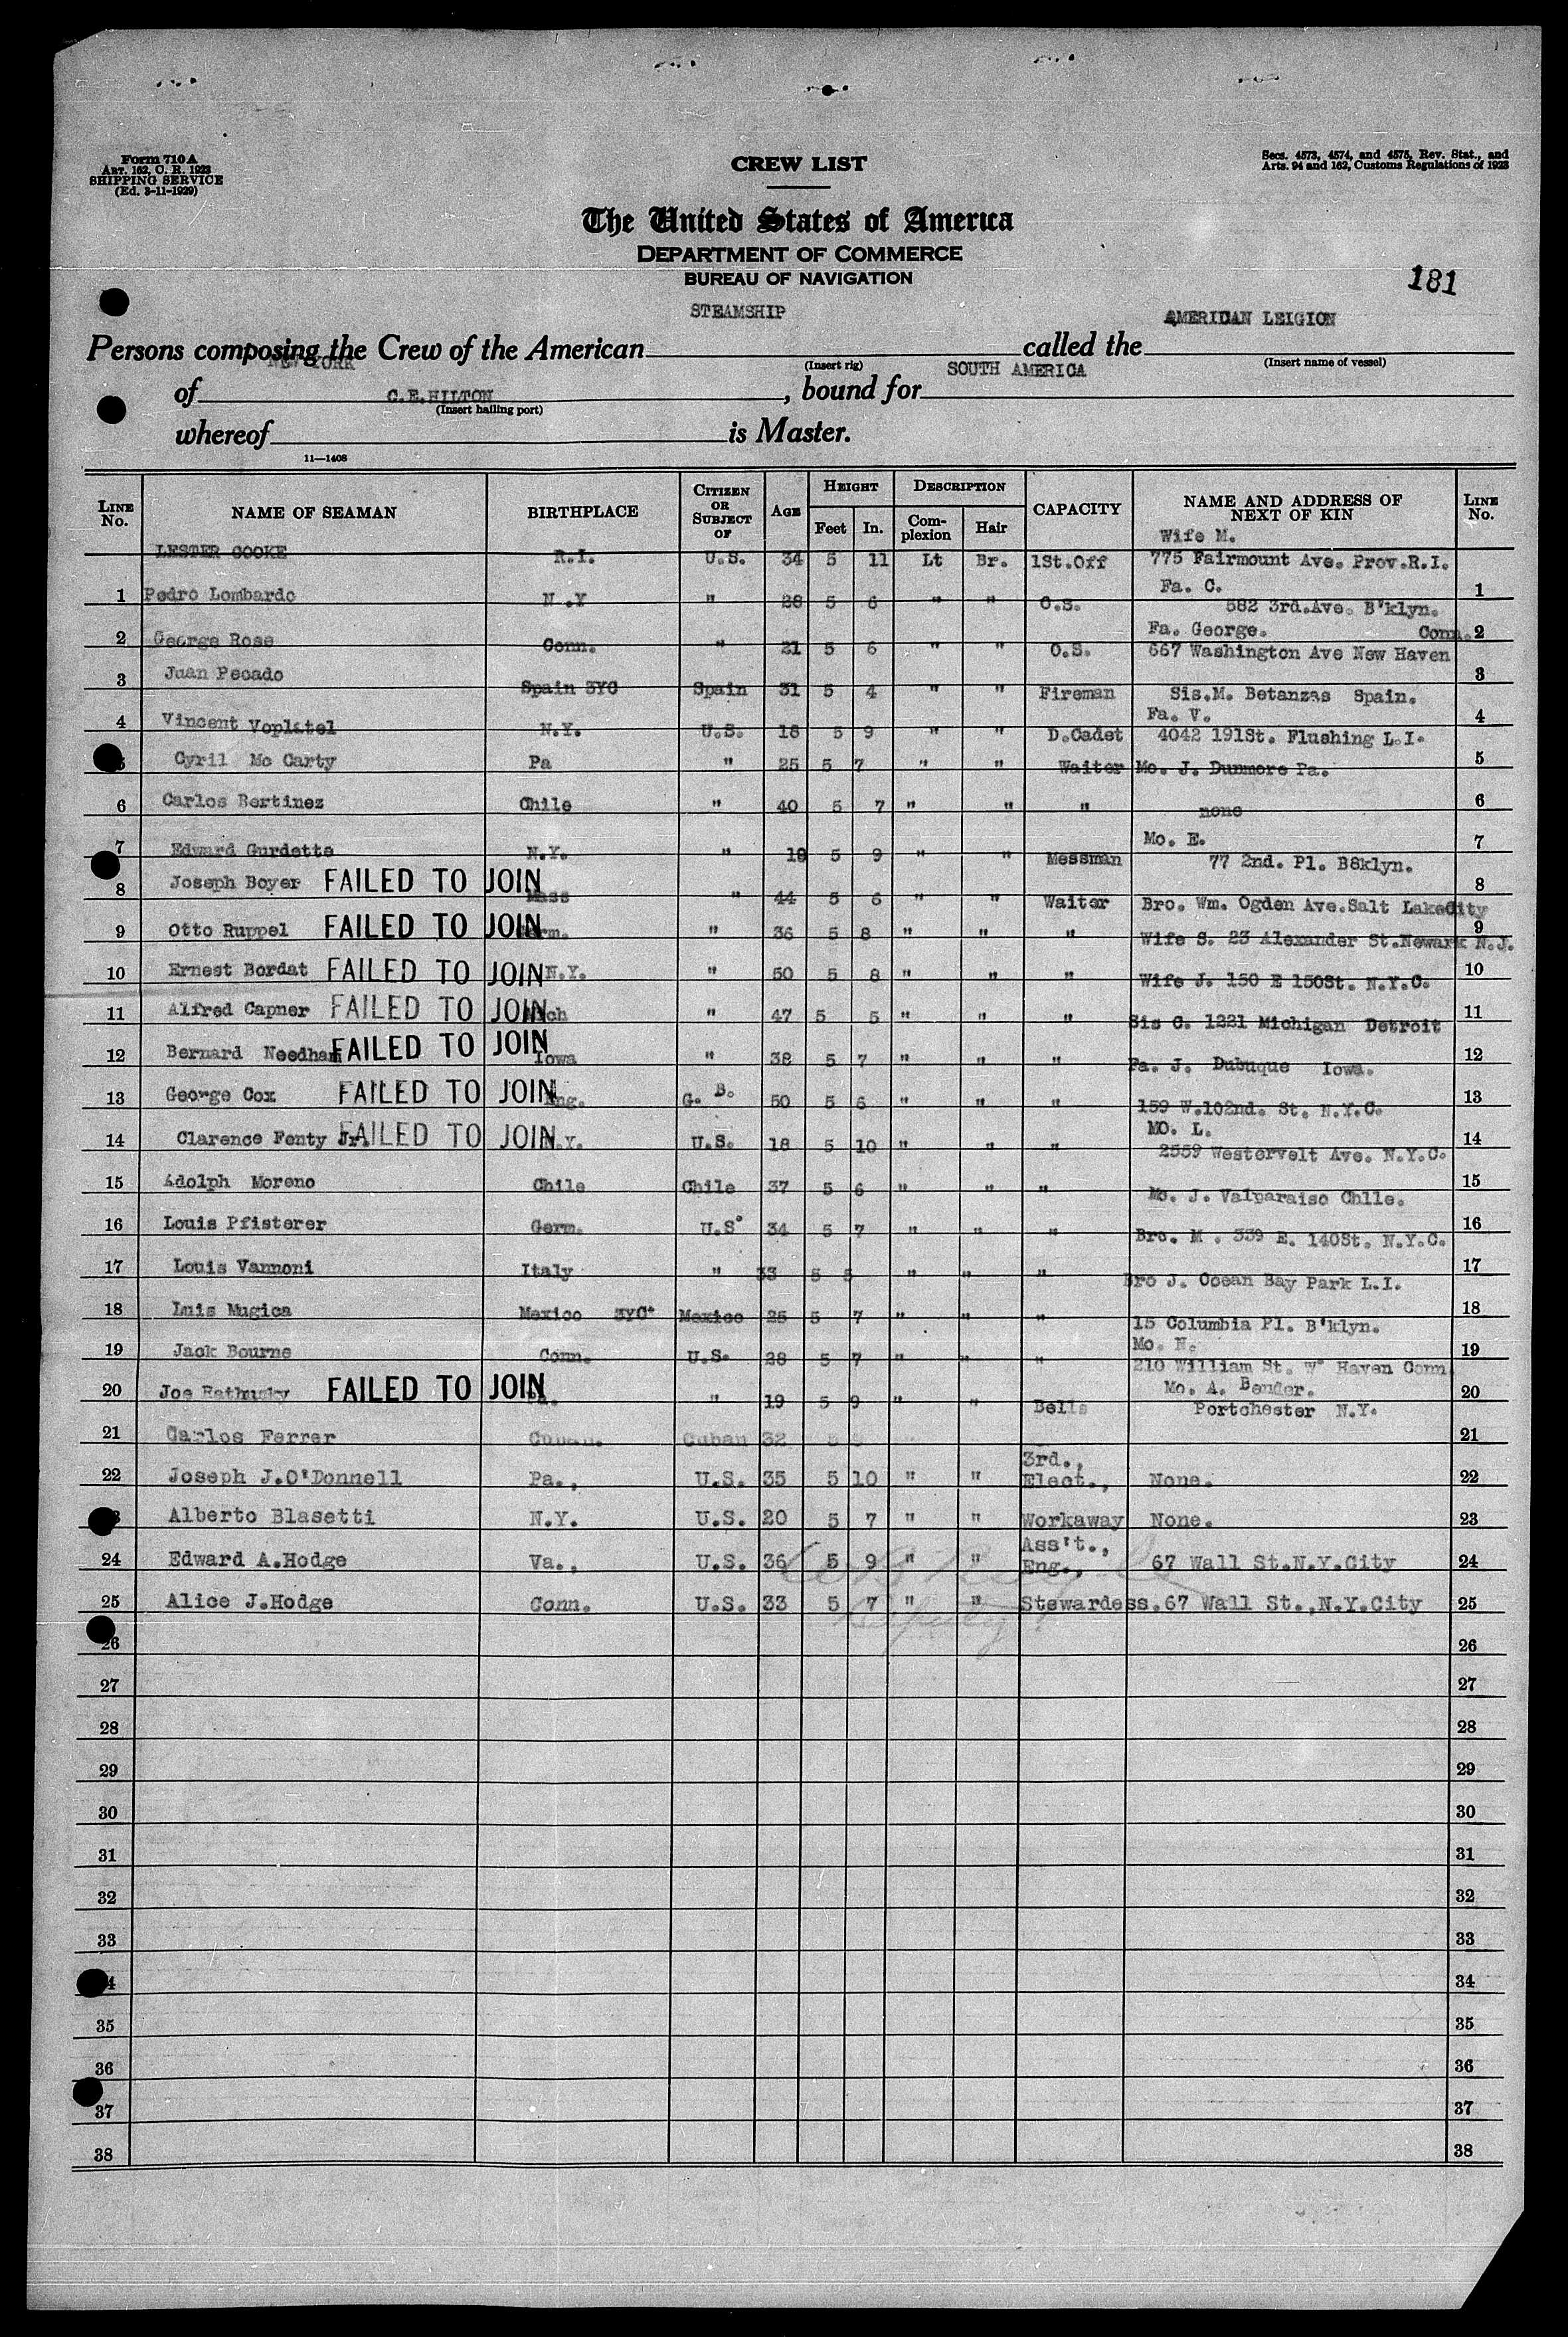 Form 710 A
ART. 162, C. R. 1923
SHIPPING SERVICE
(Ed. 3-11-1929)
Secs. 4573, 4574, and 4575, Rev. Stat., and
Arts. 94 and 162, Customs Regulations of 1923
CREW LIST
The United States of America
DEPARTMENT OF COMMERCE
BUREAU OF NAVIGATION
181
STEAMSHIP AMERICAN LEIGION
Persons composing the Crew of the American called the
(Insert rig) (Insert name of vessel)
NEW YORK SOUTH AMERICA
of , bound for
C.E.HILTON
(Insert hailing port)
whereof is Master.
11—1408
LINE No. NAME OF SEAMAN BIRTHPLACE CITIZEN OR SUBJECT OF AGE HEIGHT Feet In. DESCRIPTION Complexion Hair CAPACITY NAME AND ADDRESS OF NEXT OF KIN LINE No.
LESTER COOKE R.I. U.S. 34 5 11 Lt Br. 1St.Off Wife M. 775 Fairmount Ave. Prov.R.I.
1 Pedro Lombardo N.Y " 28 5 6 " " O.S. Fa. C. 582 3rd.Ave. B'klyn. 1
2 George Rose Conn. " 21 5 6 " " O.S. Fa. George. 667 Washington Ave New Haven Conn. 2
3 Juan Pecado Spain 3YC Spain 31 5 4 " " Fireman Sis.M. Betanzas Spain. 3
4 Vincent Voplatel N.Y. U.S. 18 5 9 " " D.Cadet Fa. V. 4042 191St. Flushing L.I. 4
Cyril Mc Carty Pa " 25 5 7 " " Waiter Mo. J. Dunmore Pa. 5
6 Carlos Bertinez Chile " 40 5 7 " " " none 6
7 Edward Gurdette N.Y. " 19 5 9 " " Messman Mo. E. 77 2nd. Pl. B8klyn. 7
8 Joseph Boyer FAILED TO JOIN Mass " 44 5 6 " " Waiter Bro. Wm. Ogden Ave.Salt LakeCity 8
9 Otto Ruppel FAILED TO JOIN Germ. " 36 5 8 " " " Wife S. 23 Alexander St.Newark N.J. 9
10 Ernest Bordat FAILED TO JOIN N.Y. " 50 5 8 " " " Wife J. 150 E 150St. N.Y.C. 10
11 Alfred Capner FAILED TO JOIN Mich " 47 5 5 " " " Sis C. 1221 Michigan Detroit 11
12 Bernard Needham FAILED TO JOIN Iowa " 38 5 7 " " " Fa. J. Dubuque Iowa. 12
13 George Cox FAILED TO JOIN Eng. G. B. 50 5 6 " " " 159 W.102nd. St. N.Y.C. 13
14 Clarence Fenty Jr. FAILED TO JOIN N.Y. U.S. 18 5 10 " " " MO. L. 2559 Westervelt Ave. N.Y.C. 14
15 Adolph Moreno Chile Chile 37 5 6 " " " Mo. J. Valparaiso Chlle. 15
16 Louis Pfisterer Germ. U.S. 34 5 7 " " " Bro. M . 339 E. 140St. N.Y.C. 16
17 Louis Vannoni Italy " 33 5 5 " " " Bro J. Ocean Bay Park L.I. 17
18 Luis Mugica Mexico 3YC. Mexico 25 5 7 " " " 15 Columbia Pl. B'klyn. 18
19 Jack Bourne Conn. U.S. 28 5 7 " " " Mo. N. 210 William St. W. Haven Conn 19
20 Joe FAILED TO JOIN Pa. " 19 5 9 " " Bells Mo. A. Bender. Portchester N.Y. 20
21 Carlos Ferrer Cuban. Cuban 32 21
22 Joseph J.O'Donnell Pa., U.S. 35 5 10 " " 3rd., Elect., None. 22
Alberto Blasetti N.Y. U.S. 20 5 7 " " Workaway None. 23
24 Edward A.Hodge Va., U.S. 36 5 9 " " Ass't., Eng., 67 Wall St.N.Y.City 24
25 Alice J.Hodge Conn. U.S. 33 5 7 " " Stewardess. 67 Wall St.,N.Y.City 25
Deputy
26 26
27 27
28 28
29 29
30 30
31 31
32 32
33 33
34 34
35 35
36 36
37 37
38 38